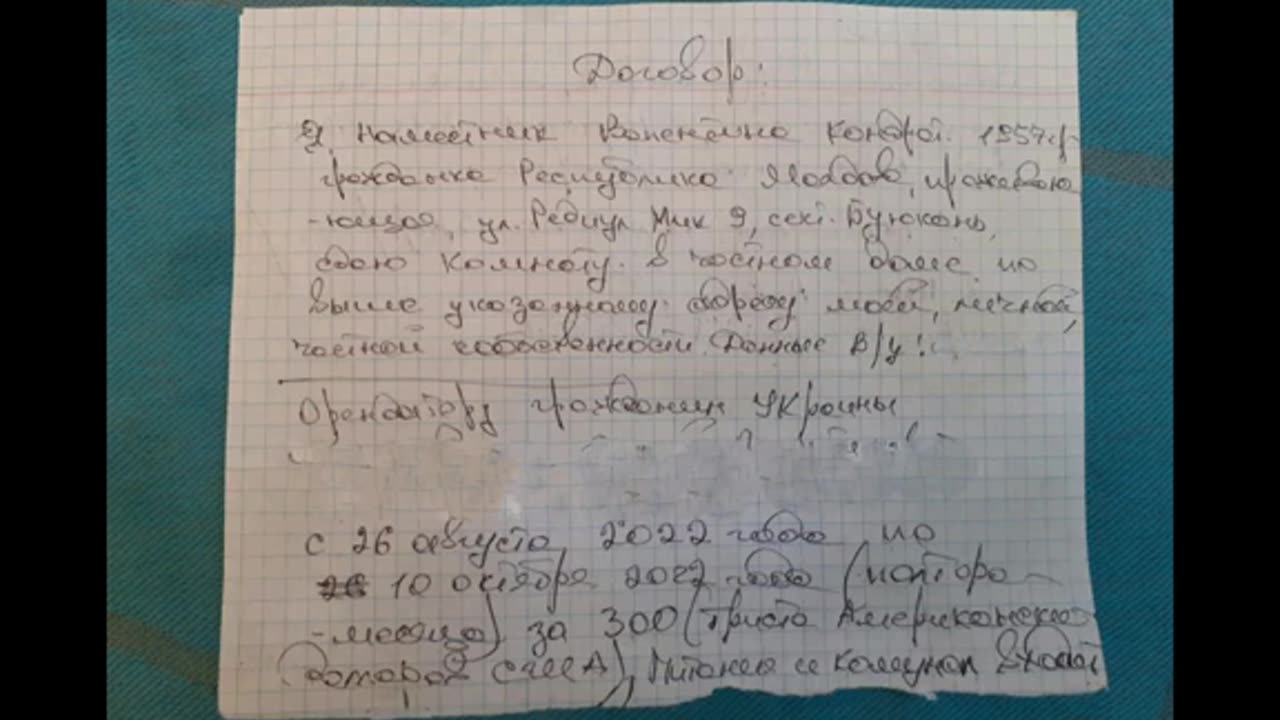 Договор:
Я, Наместник Валентина Кондрат. 1957г.р
гражданка Республика Молдова, прожеваю
-ющая, ул. Редиул Мик 9, сект. Буюкань,
сдаю комнату в частном доме по
выше указанному адресу моей, личной,
частной собственности. Данные в/у:
Орендатору гражданин Украины
с 26 августа 2022 года по
10 октября 2022 года (полторо
-месяца) за 300 (триста Американских
доларов США), Питание и комунал входят